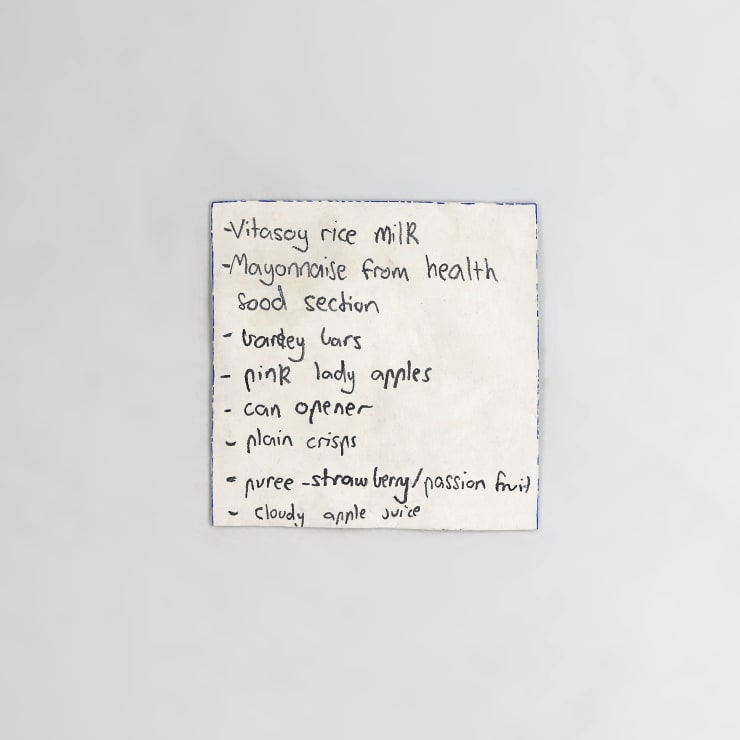 -Vitasoy rice milk
-Mayonnaise from health
food section
- bars
- pink lady apples
- can opener
- plain crisps
- puree -strawberry/passion fruit
- cloudy apple juice